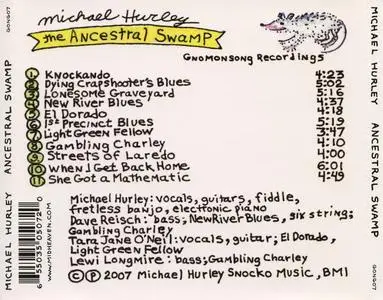 michael Hurley
the Ancestral Swamp
Gnomonsong Recordings
1 Knockando 4:23
2 Dying Crapshooter's Blues 5:02
3 Lonesome Graveyard 5:16
4 New River Blues 4:37
5 El Dorado 4:18
6 1st Precinct Blues 5:19
7 Light Green Fellow 3:47
8 Gambling Charley 4:10
9 Streets of Laredo 4:00
10 When I Get Back Home 6:01
11 She Got a Mathematic 4:49
Michael Hurley: vocals, guitars, fiddle,
fretless banjo, electronic piano
Dave Reisch: bass; New River Blues, six string;
Gambling Charley
Tara Jane O'Neil: vocals, guitar; El Dorado,
Light Green Fellow
Lewi Longmire: bass; Gambling Charley
© ℗ 2007 Michael Hurley Snocko Music, BMI
MICHAEL HURLEY ANCESTRAL SWAMP GONG07
WWW.MIDHEAVEN.COM
6 55035 05072 0
MICHAEL HURLEY ANCESTRAL SWAMP GONG07